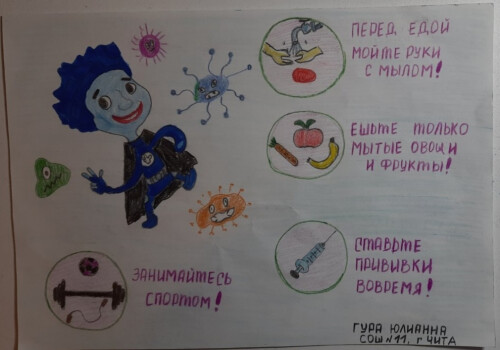 ПЕРЕД ЕДОЙ
МОЙТЕ РУКИ
С МЫЛОМ!
ЕШЬТЕ ТОЛЬКО
МЫТЫЕ ОВОЩИ
И ФРУКТЫ!
ЗАНИМАЙТЕСЬ
СПОРТОМ!
СТАВЬТЕ
ПРИВИВКИ
ВОВРЕМЯ!
ГУРА ЮЛИАННА
СОШ №11, г ЧИТА